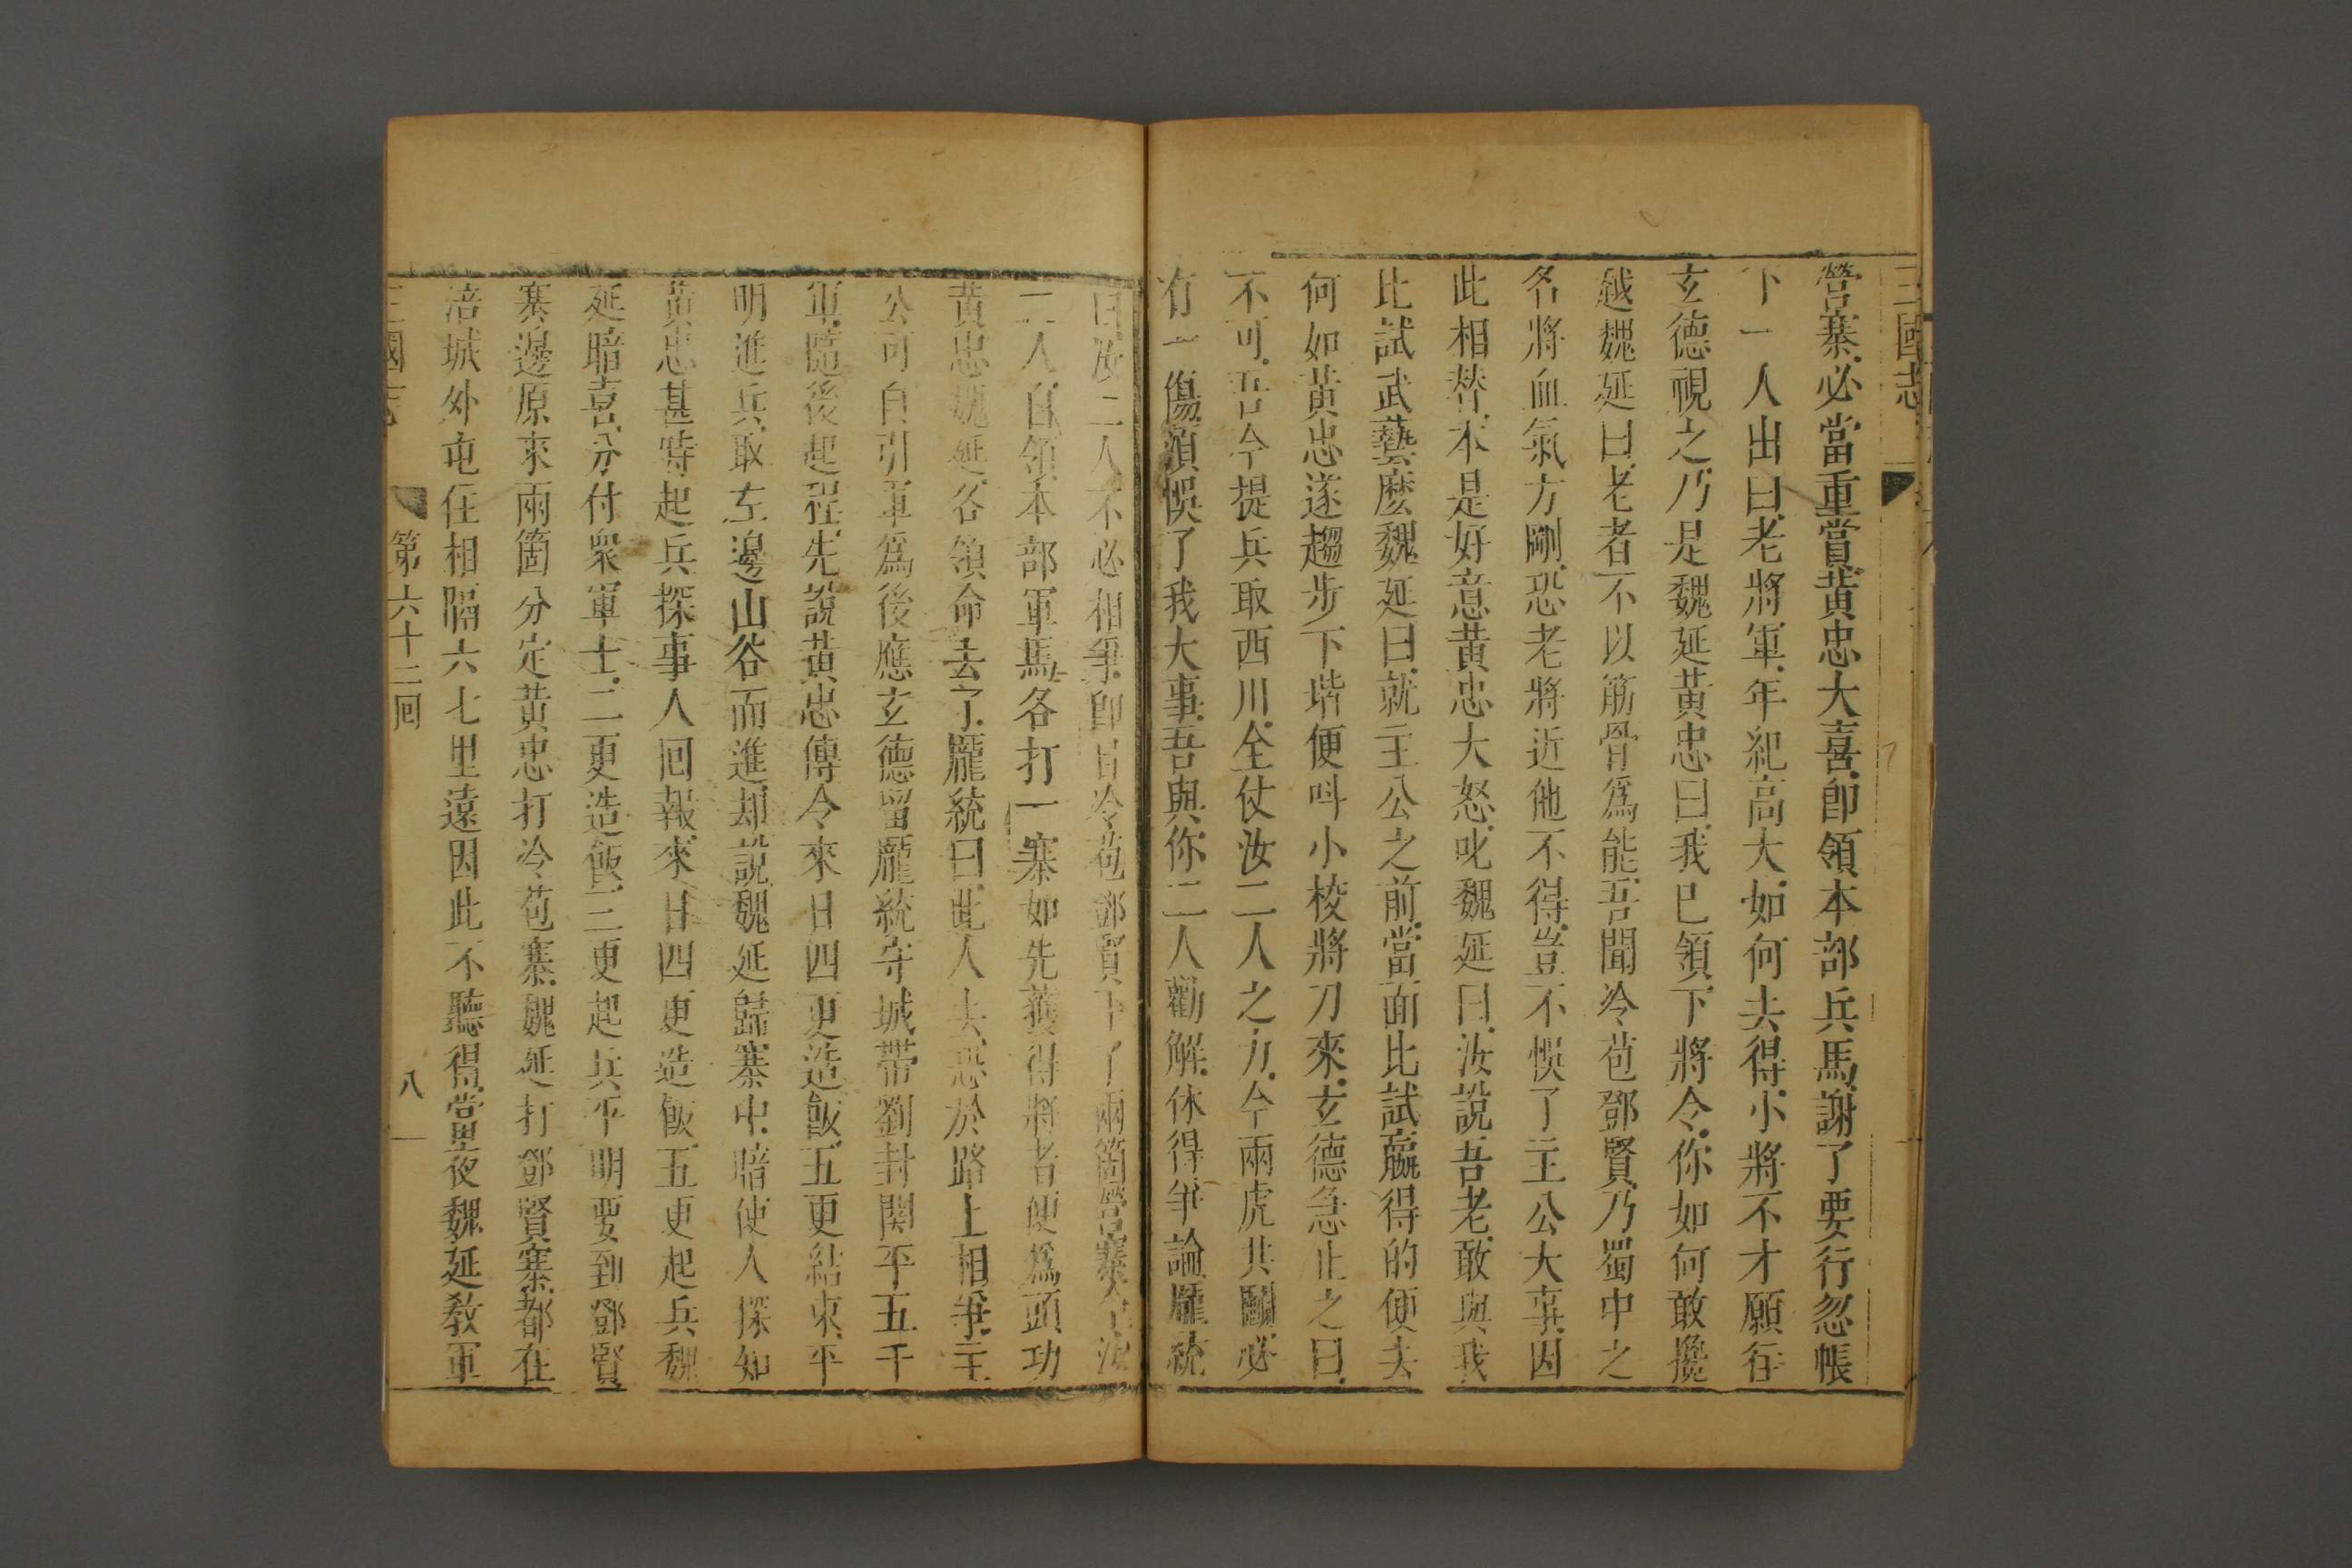 三國志
營寨必當重賞黃忠大喜卽領本部兵馬謝了要行忽帳
下一人出曰老將軍年紀高大如何去得小將不才願往
玄德視之乃是魏延黃忠曰我已領下將令你如何敢攙
越魏延曰老者不以筋骨爲能吾聞冷苞鄧賢乃蜀中之
名將血氣方剛恐老將近他不得豈不悞了主公大事因
此相替本是好意黃忠大怒叱魏延曰汝說吾老敢與我
比試武藝麽魏延曰就主公之前當面比試贏得的便去
何如黃忠遂趨步下堦便呌小校將刀來玄德急止之曰
不可吾今提兵取西川全仗汝二人之力今兩虎共鬭必
有一傷須悞了我大事吾與你二人勸解休得爭論龐統
曰汝二人不必相爭卽目冷苞鄧賢下了兩箇營寨今汝
二人自領本部軍馬各打一寨如先獲得將者便爲頭功
黃忠魏延各領命去了龐統曰此人去恐於路上相爭主
公可自引軍爲後應玄德留龐統守城帶劉封関平五千
軍隨後起程先說黃忠傳令來日四更造飯五更結束平
明進兵取左邊山谷而進却說魏延歸寨中暗使人探知
黃忠甚時起兵探事人囘報來日四更造飯五更起兵魏
延暗喜分付衆軍士二更造飯三更起兵平明要到鄧賢
寨邊原來兩箇分定黃忠打冷苞寨魏延打鄧賢寨都在
涪城外屯住相隔六七里遠因此不聽得當里夜魏延敎軍
三國志 第六十二囘 八